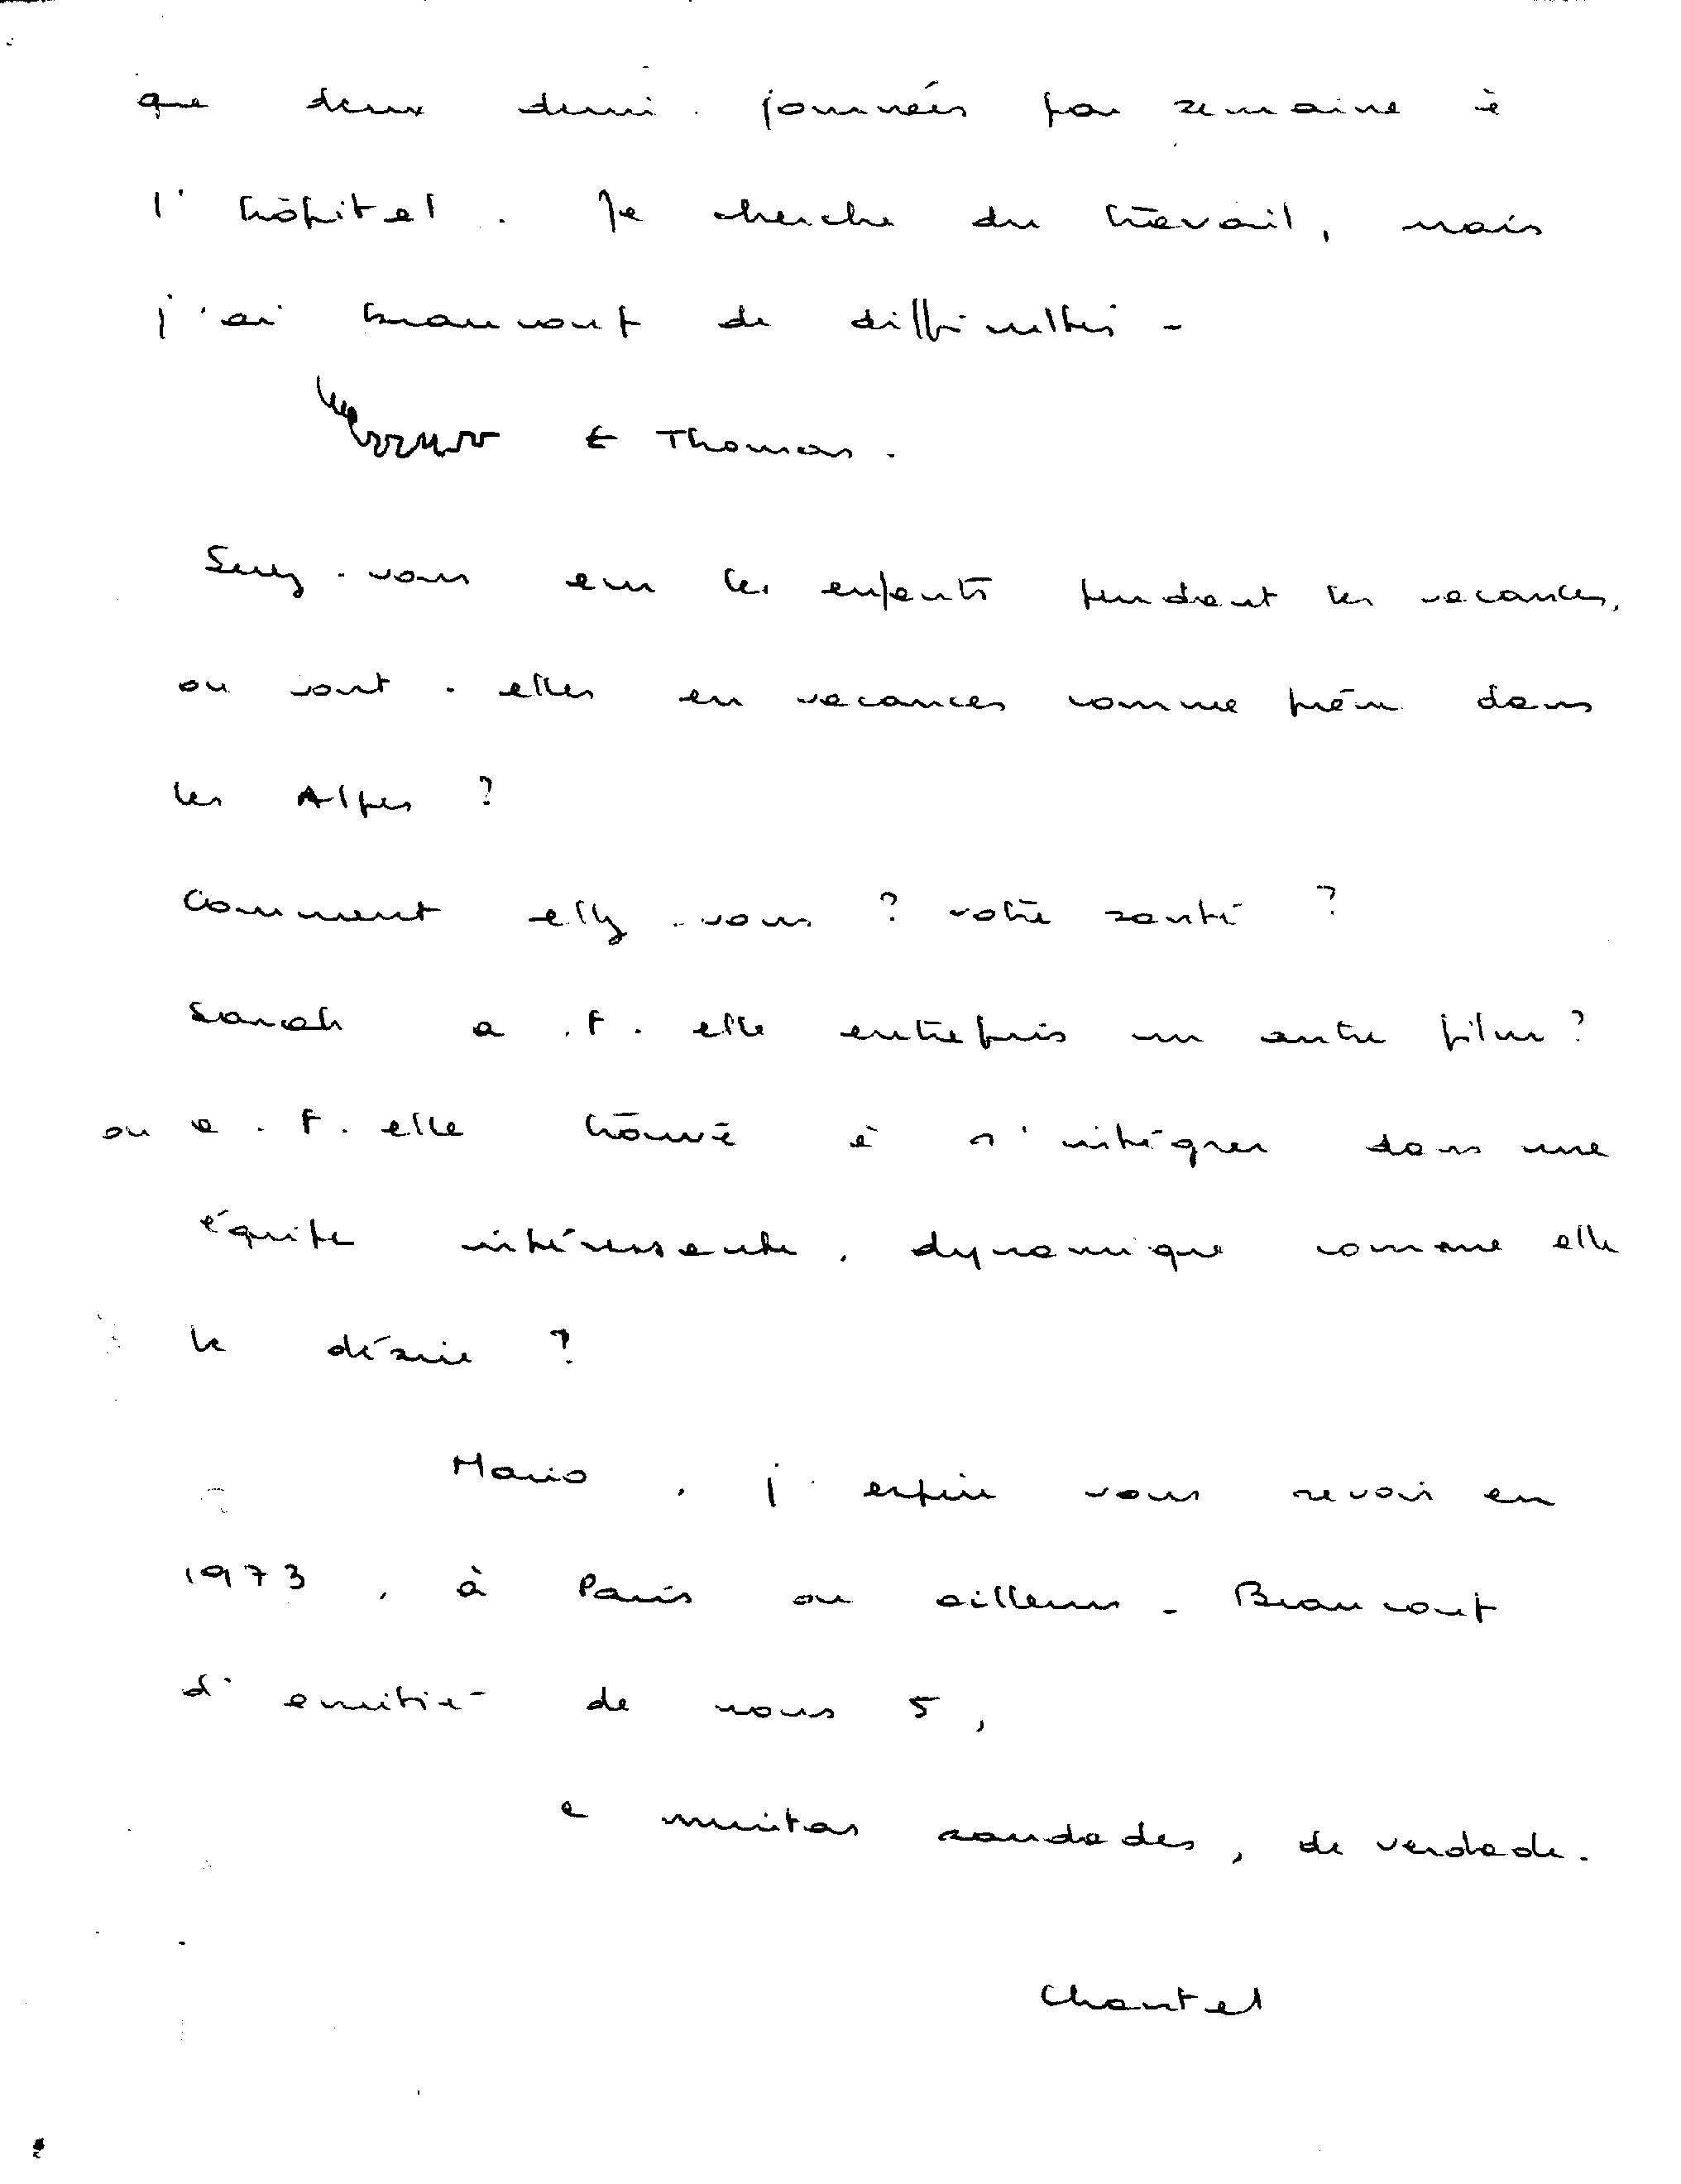 que deux demi-journées par semaine à
l'hôpital. Je cherche du travail, mais
j'ai beaucoup de difficultés -
← Thomas.
Serez-vous les enfants pendant les vacances,
ou sont-elles en vacances comme prévu dans
les Alpes ?
Comment allez-vous ? votre santé ?
Sarah a-t-elle entrepris un autre film ?
ou a-t-elle trouvé à s'intégrer dans une
équipe intéressante, dynamique comme elle
le désire ?
Mario, j'espère vous revoir en
1973, à Paris ou ailleurs - Beaucoup
d'amitié de nous 5,
e muitas saudades, de verdade.
Chantal